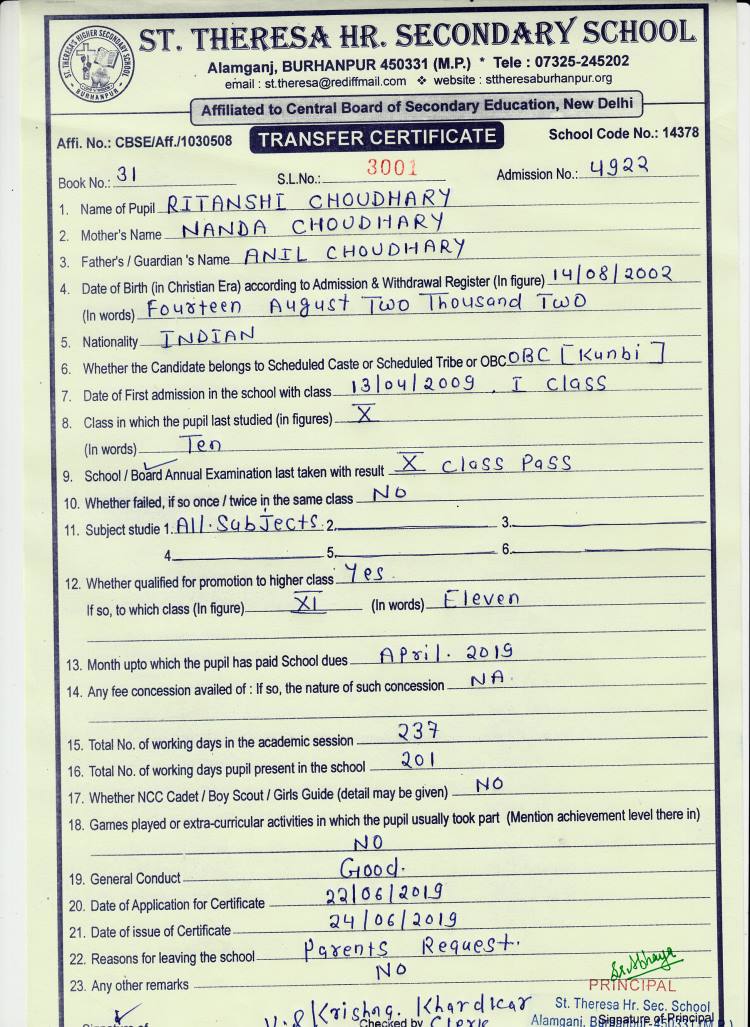 ST. THERESA'S HIGHER SECONDARY SCHOOL
BURHANPUR
ST. THERESA HR. SECONDARY SCHOOL
Alamganj, BURHANPUR 450331 (M.P.) * Tele : 07325-245202
email : st.theresa@rediffmail.com ❖ website : sttheresaburhanpur.org
Affiliated to Central Board of Secondary Education, New Delhi
Affi. No.: CBSE/Aff./1030508 TRANSFER CERTIFICATE School Code No.: 14378
Book No.: 31 S.L.No.: 3001 Admission No.: 4922
1. Name of Pupil RITANSHI CHOUDHARY
2. Mother's Name NANDA CHOUDHARY
3. Father's / Guardian 's Name ANIL CHOUDHARY
4. Date of Birth (in Christian Era) according to Admission & Withdrawal Register (In figure) 14/08/2002
(In words) Fourteen August Two Thousand Two
5. Nationality INDIAN
6. Whether the Candidate belongs to Scheduled Caste or Scheduled Tribe or OBC OBC [Kunbi]
7. Date of First admission in the school with class 13/04/2009, I Class
8. Class in which the pupil last studied (in figures) X
(In words) Ten
9. School / Board Annual Examination last taken with result X Class Pass
10. Whether failed, if so once / twice in the same class NO
11. Subject studie 1. All. Subjects 2. 3.
4. 5. 6.
12. Whether qualified for promotion to higher class Yes.
If so, to which class (In figure) XI (In words) Eleven
13. Month upto which the pupil has paid School dues April. 2019
14. Any fee concession availed of : If so, the nature of such concession NA.
15. Total No. of working days in the academic session 237
16. Total No. of working days pupil present in the school 201
17. Whether NCC Cadet / Boy Scout / Girls Guide (detail may be given) NO
18. Games played or extra-curricular activities in which the pupil usually took part (Mention achievement level there in)
NO
19. General Conduct Good.
20. Date of Application for Certificate 22/06/2019
21. Date of issue of Certificate 24/06/2019
22. Reasons for leaving the school Parents Request.
23. Any other remarks NO
Sr. Abhaya
PRINCIPAL
St. Theresa Hr. Sec. School
Krishna. Khardikar
Checked by Clerk
Alamganj, Signature of Principal
Signature of